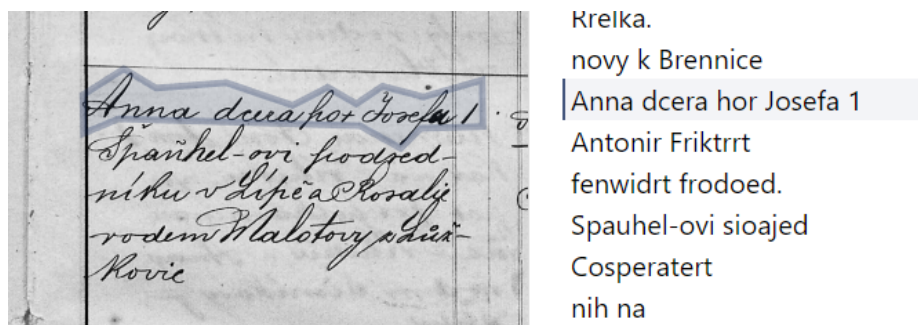 Anna dcera hor Josefa 1
Španhel-ovi podsed-
níku v Lípě a Rosalie
rodem Malotovy z Luž-
kovic
Rrelka.
novy k Brennice
Anna dcera hor Josefa 1
Antonir Friktrrt
fenwidrt frodoed.
Spauhel-ovi sioajed
Cosperatert
nih na